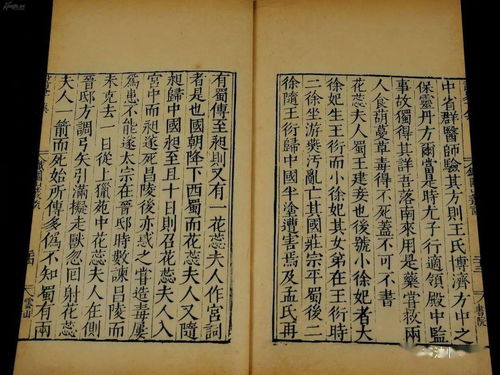 中省群醫師驗其方則王氏博濟方中之
保靈丹方爾當是時尤子行適領殿中監
事故獨得其詳吾落南來用是藥嘗救兩
人食葫蔓草毒得不死蓋不可不書
花蕊夫人蜀王建妾也後號小徐妃者大
徐妃生王衍而小徐妃其女弟在王衍時
二徐坐游燕汚亂亡其國莊宗平蜀後二
徐隨王衍歸中國半塗遭害焉及孟氏再
書院
有蜀傳至昶則又有一花蕊夫人作宮詞
者是也國朝降下西蜀而花蕊夫人又隨
昶歸中國昶至且十日則召花蕊夫人入
宮中而昶遂死昌陵後亦惑之嘗造毒屢
爲患不能遂太宗在晉邸時數諫昌陵而
未克去一日從上獵苑中花蕊夫人在側
晉邸方調弓矢引滿擬走獸忽回射花蕊
夫人一箭而死始所傳多僞不知蜀有兩
雲山